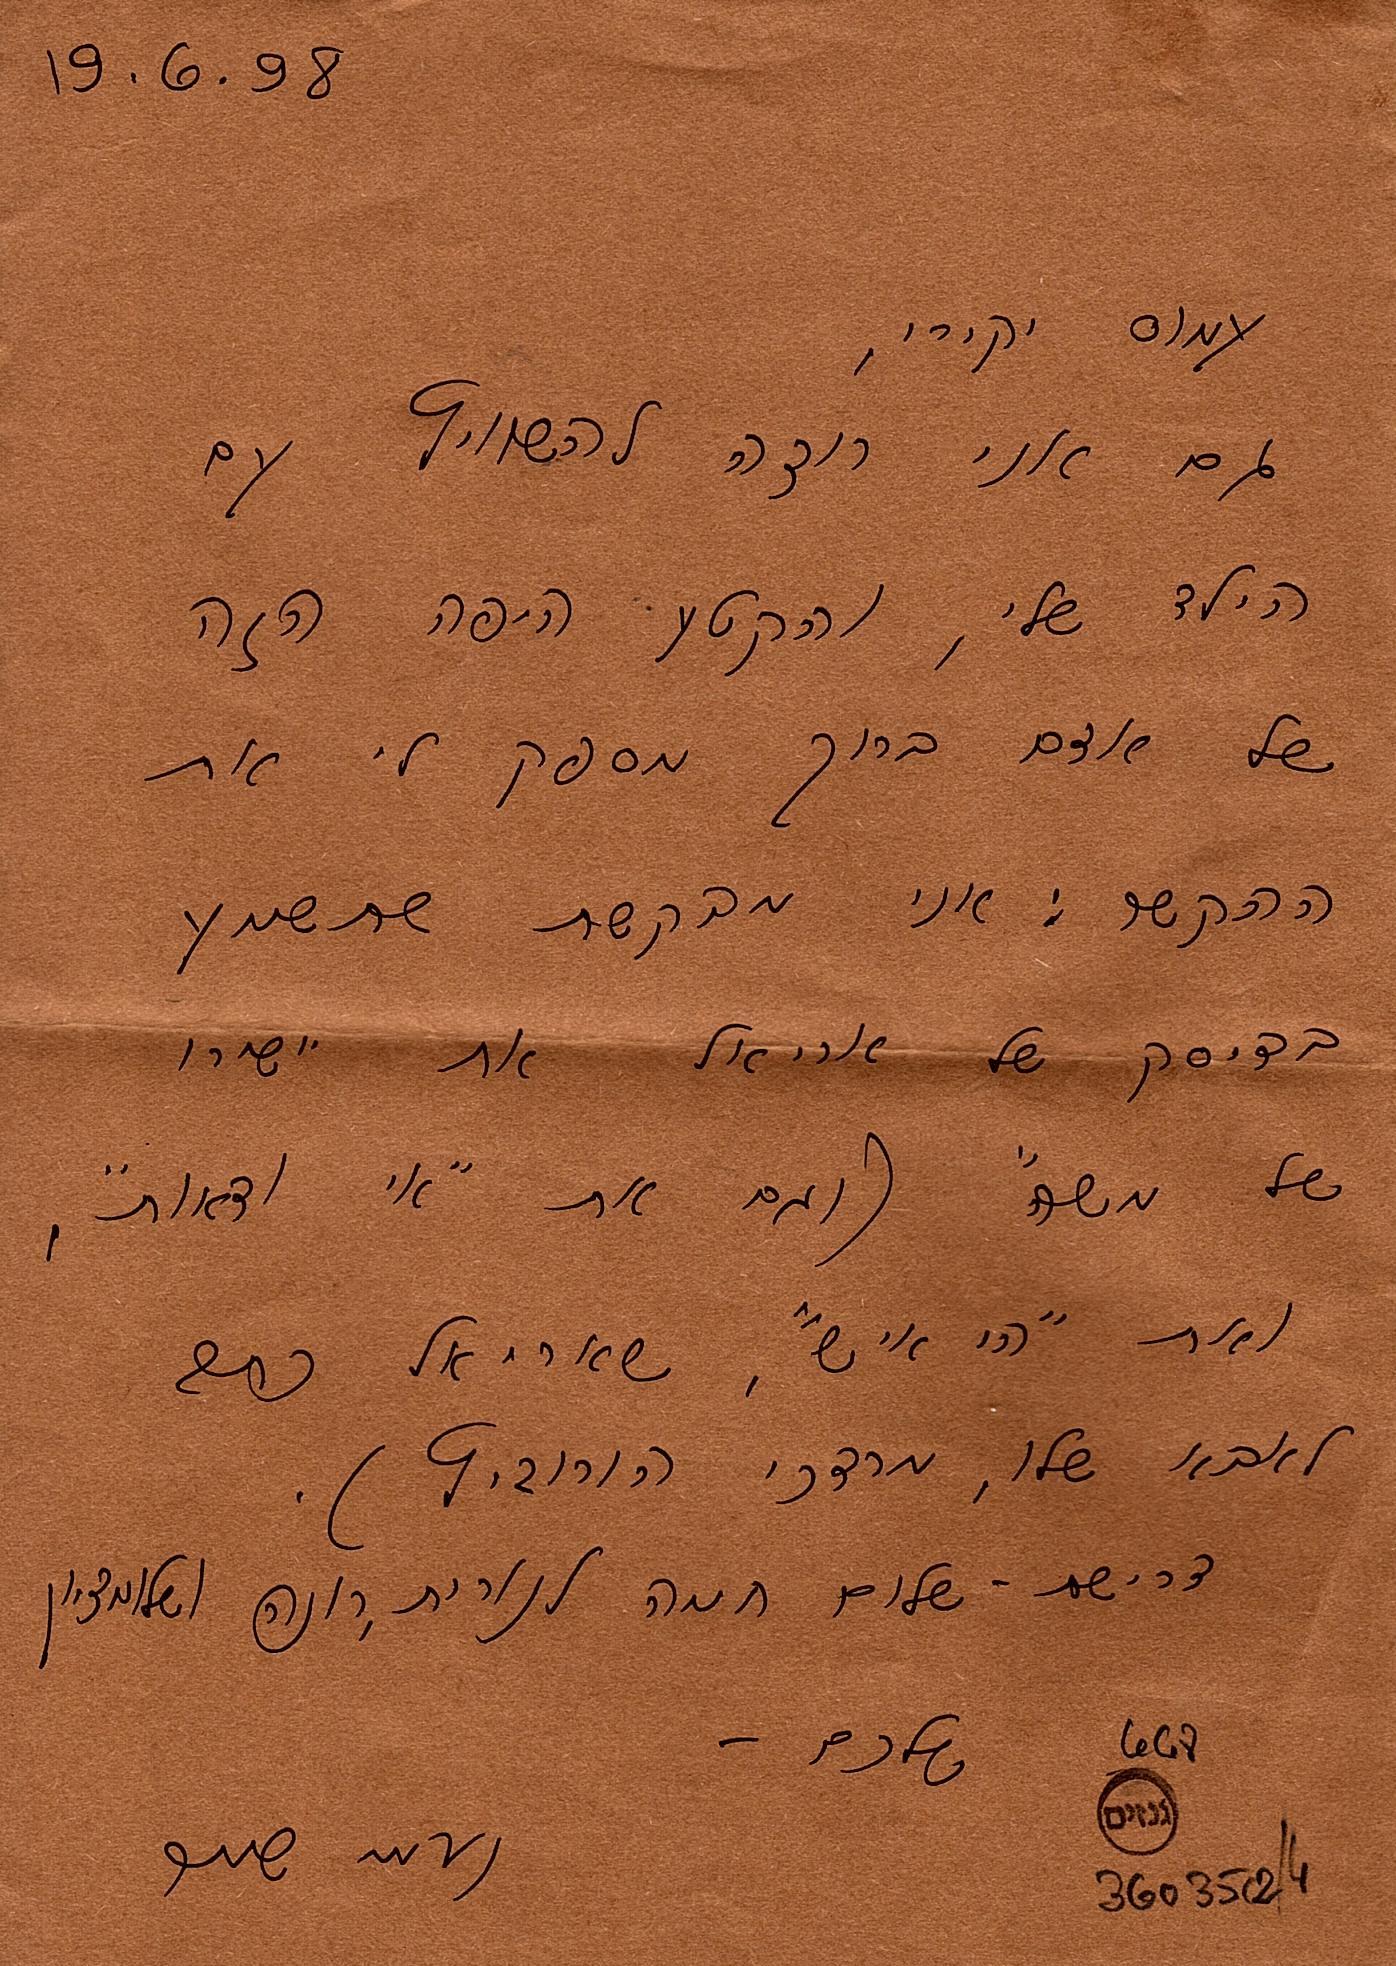 19.6.98
עמוס יקירי,
גם אני רוצה להשוויץ עם
הילד שלי, והקטע היפה הזה
של אדם ברוך מספק לי את
ההקשר: אני מבקשת שתשמע
בדיסק של אריאל את "שירו
של משה" (וגם את "אי ודאות",
ואת "הי איש", שאריאל כתב
לאבא שלו, מרדכי הורוביץ).
דרישת-שלום חמה לנורית, רונה ושלומציון
שלכם -
נעמי שמר
667
גנזים
360352/4